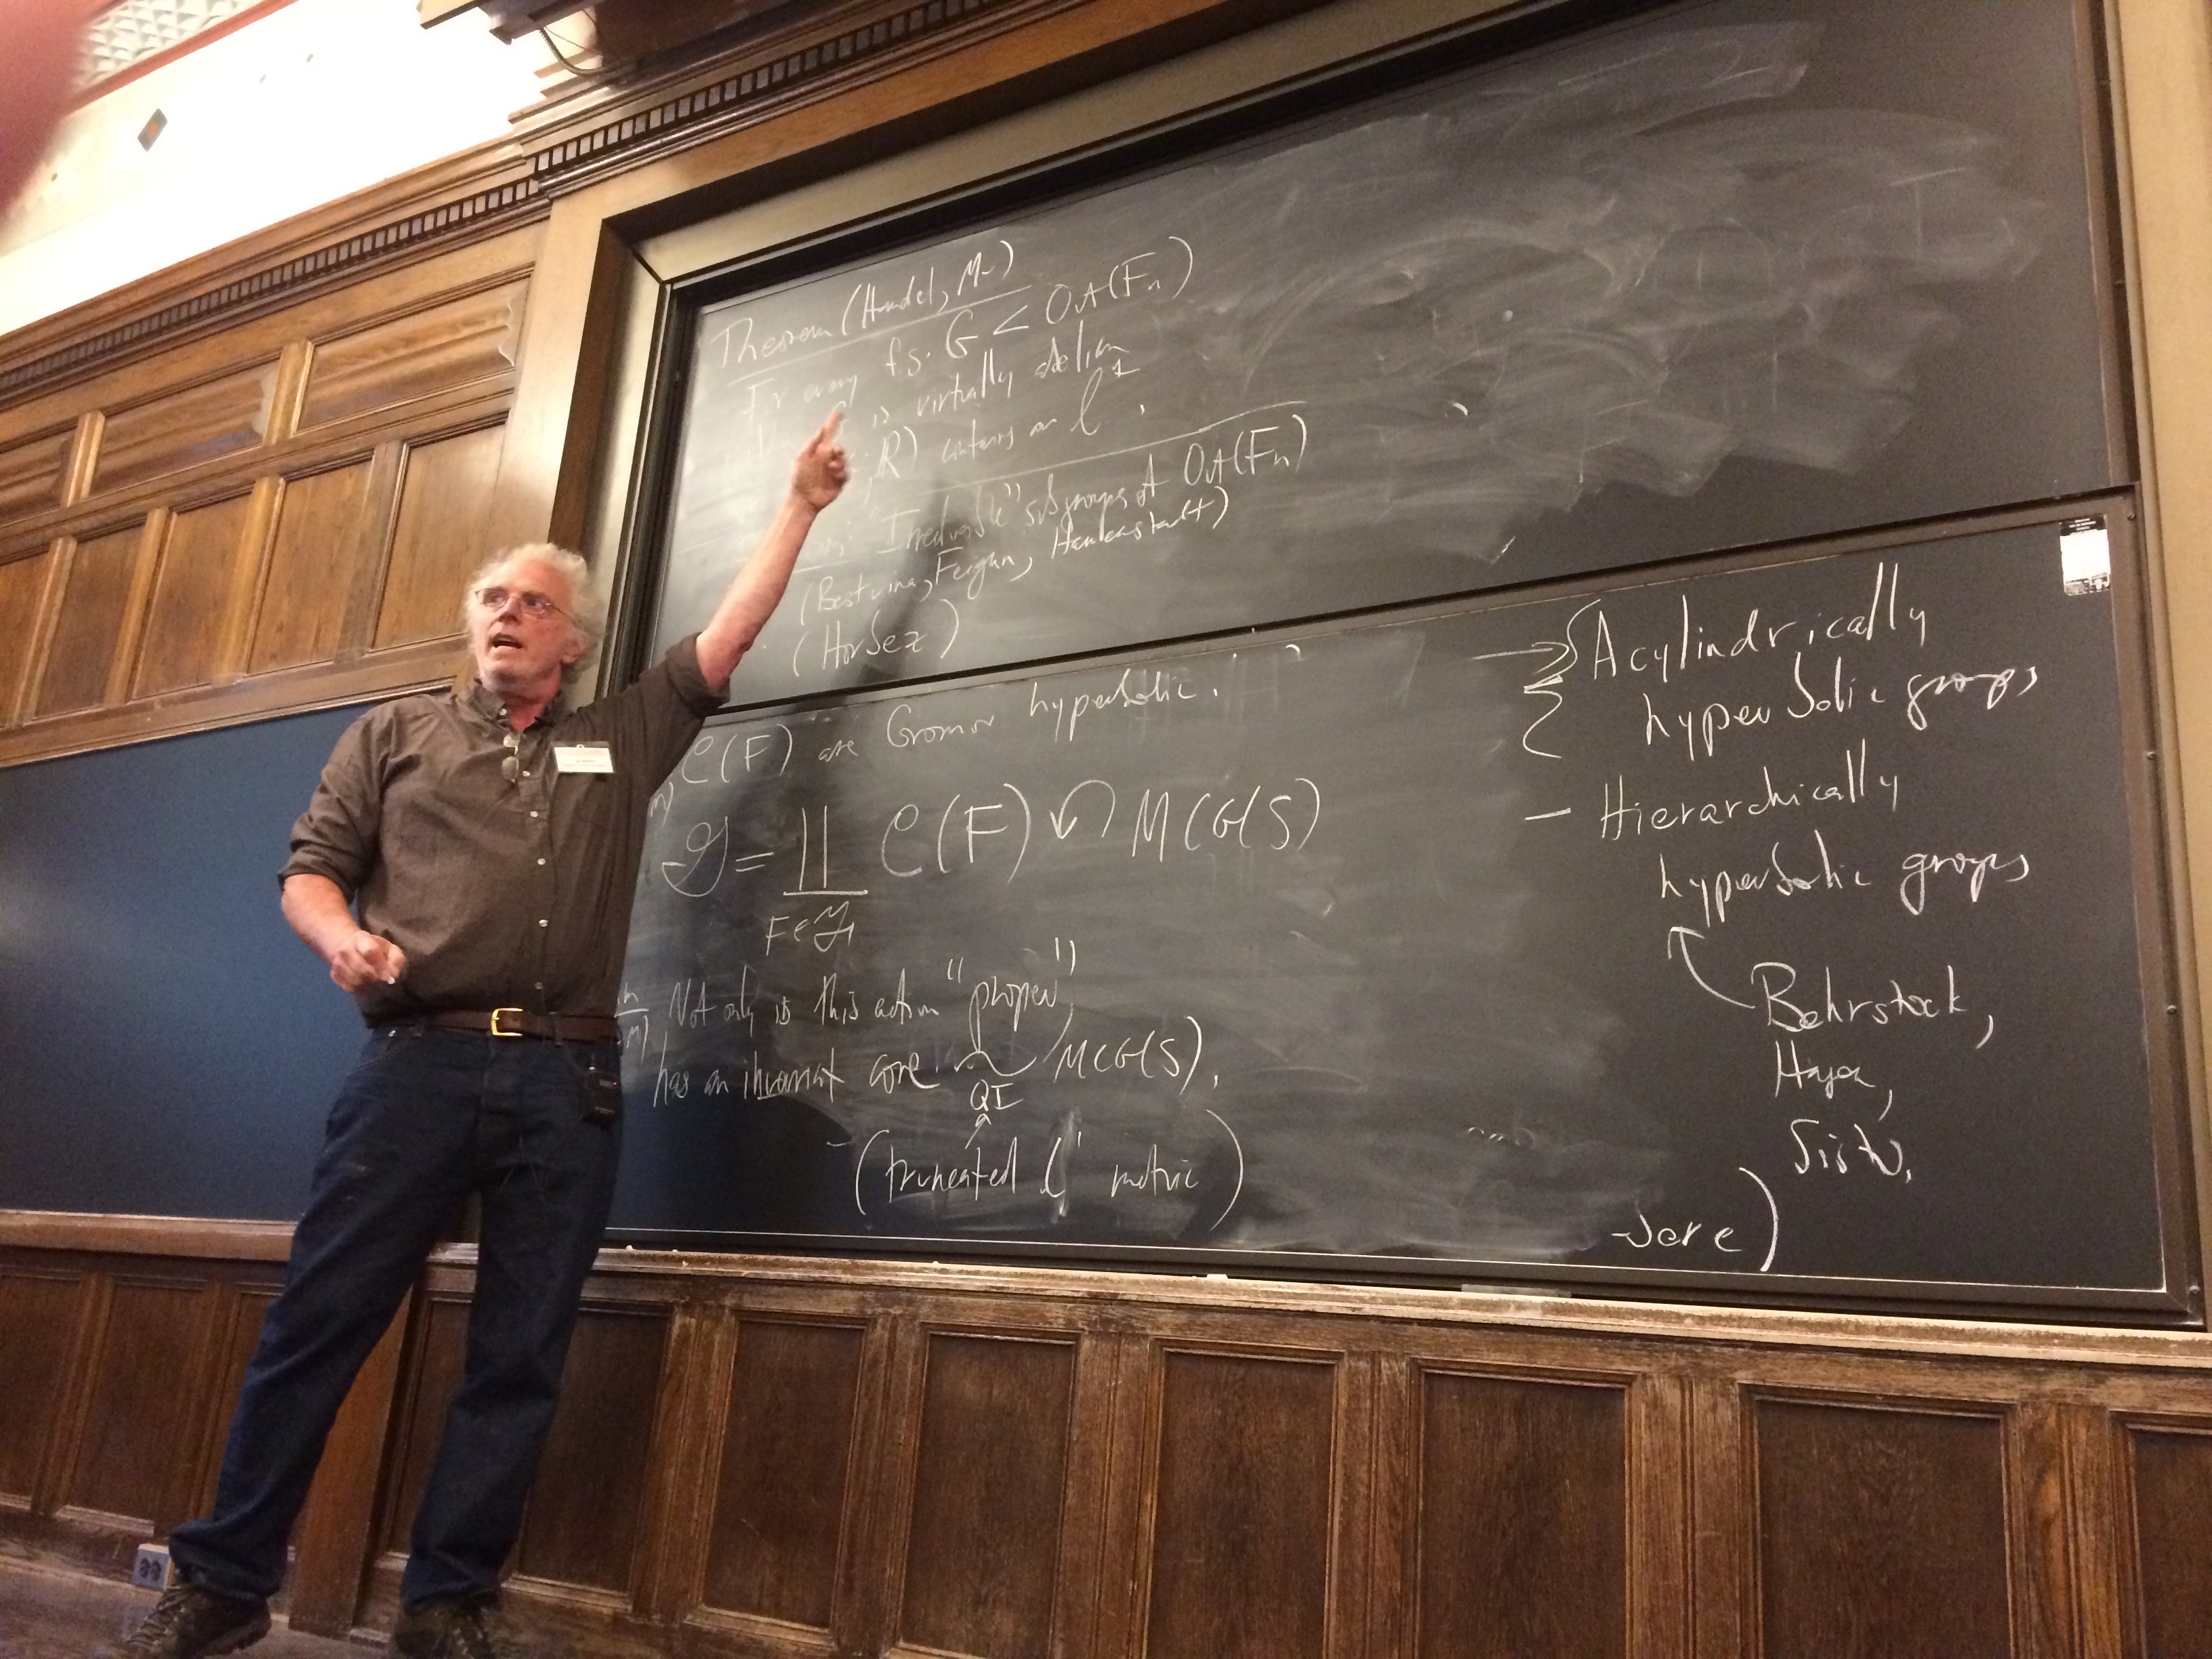 Theorem (Handel, M–)
For every f.g. G < Out(Fn)
is virtually abelian
;R) contains an ℓ¹.
"Irreducible" subgroups of Out(Fn)
(Bestvina, Feighn, Hamenstadt)
(Horbez)
C(F) are Gromov hyperbolic.
Y = ∐ C(F) ↶ MCG(S)
F∈
Not only is this action "proper",
has an invariant core ~ MCG(S).
QI
(truncated ℓ¹ metric)
→ Acylindrically
hyperbolic groups
– Hierarchically
hyperbolic groups
Behrstock,
Hagen,
Sisto.
)